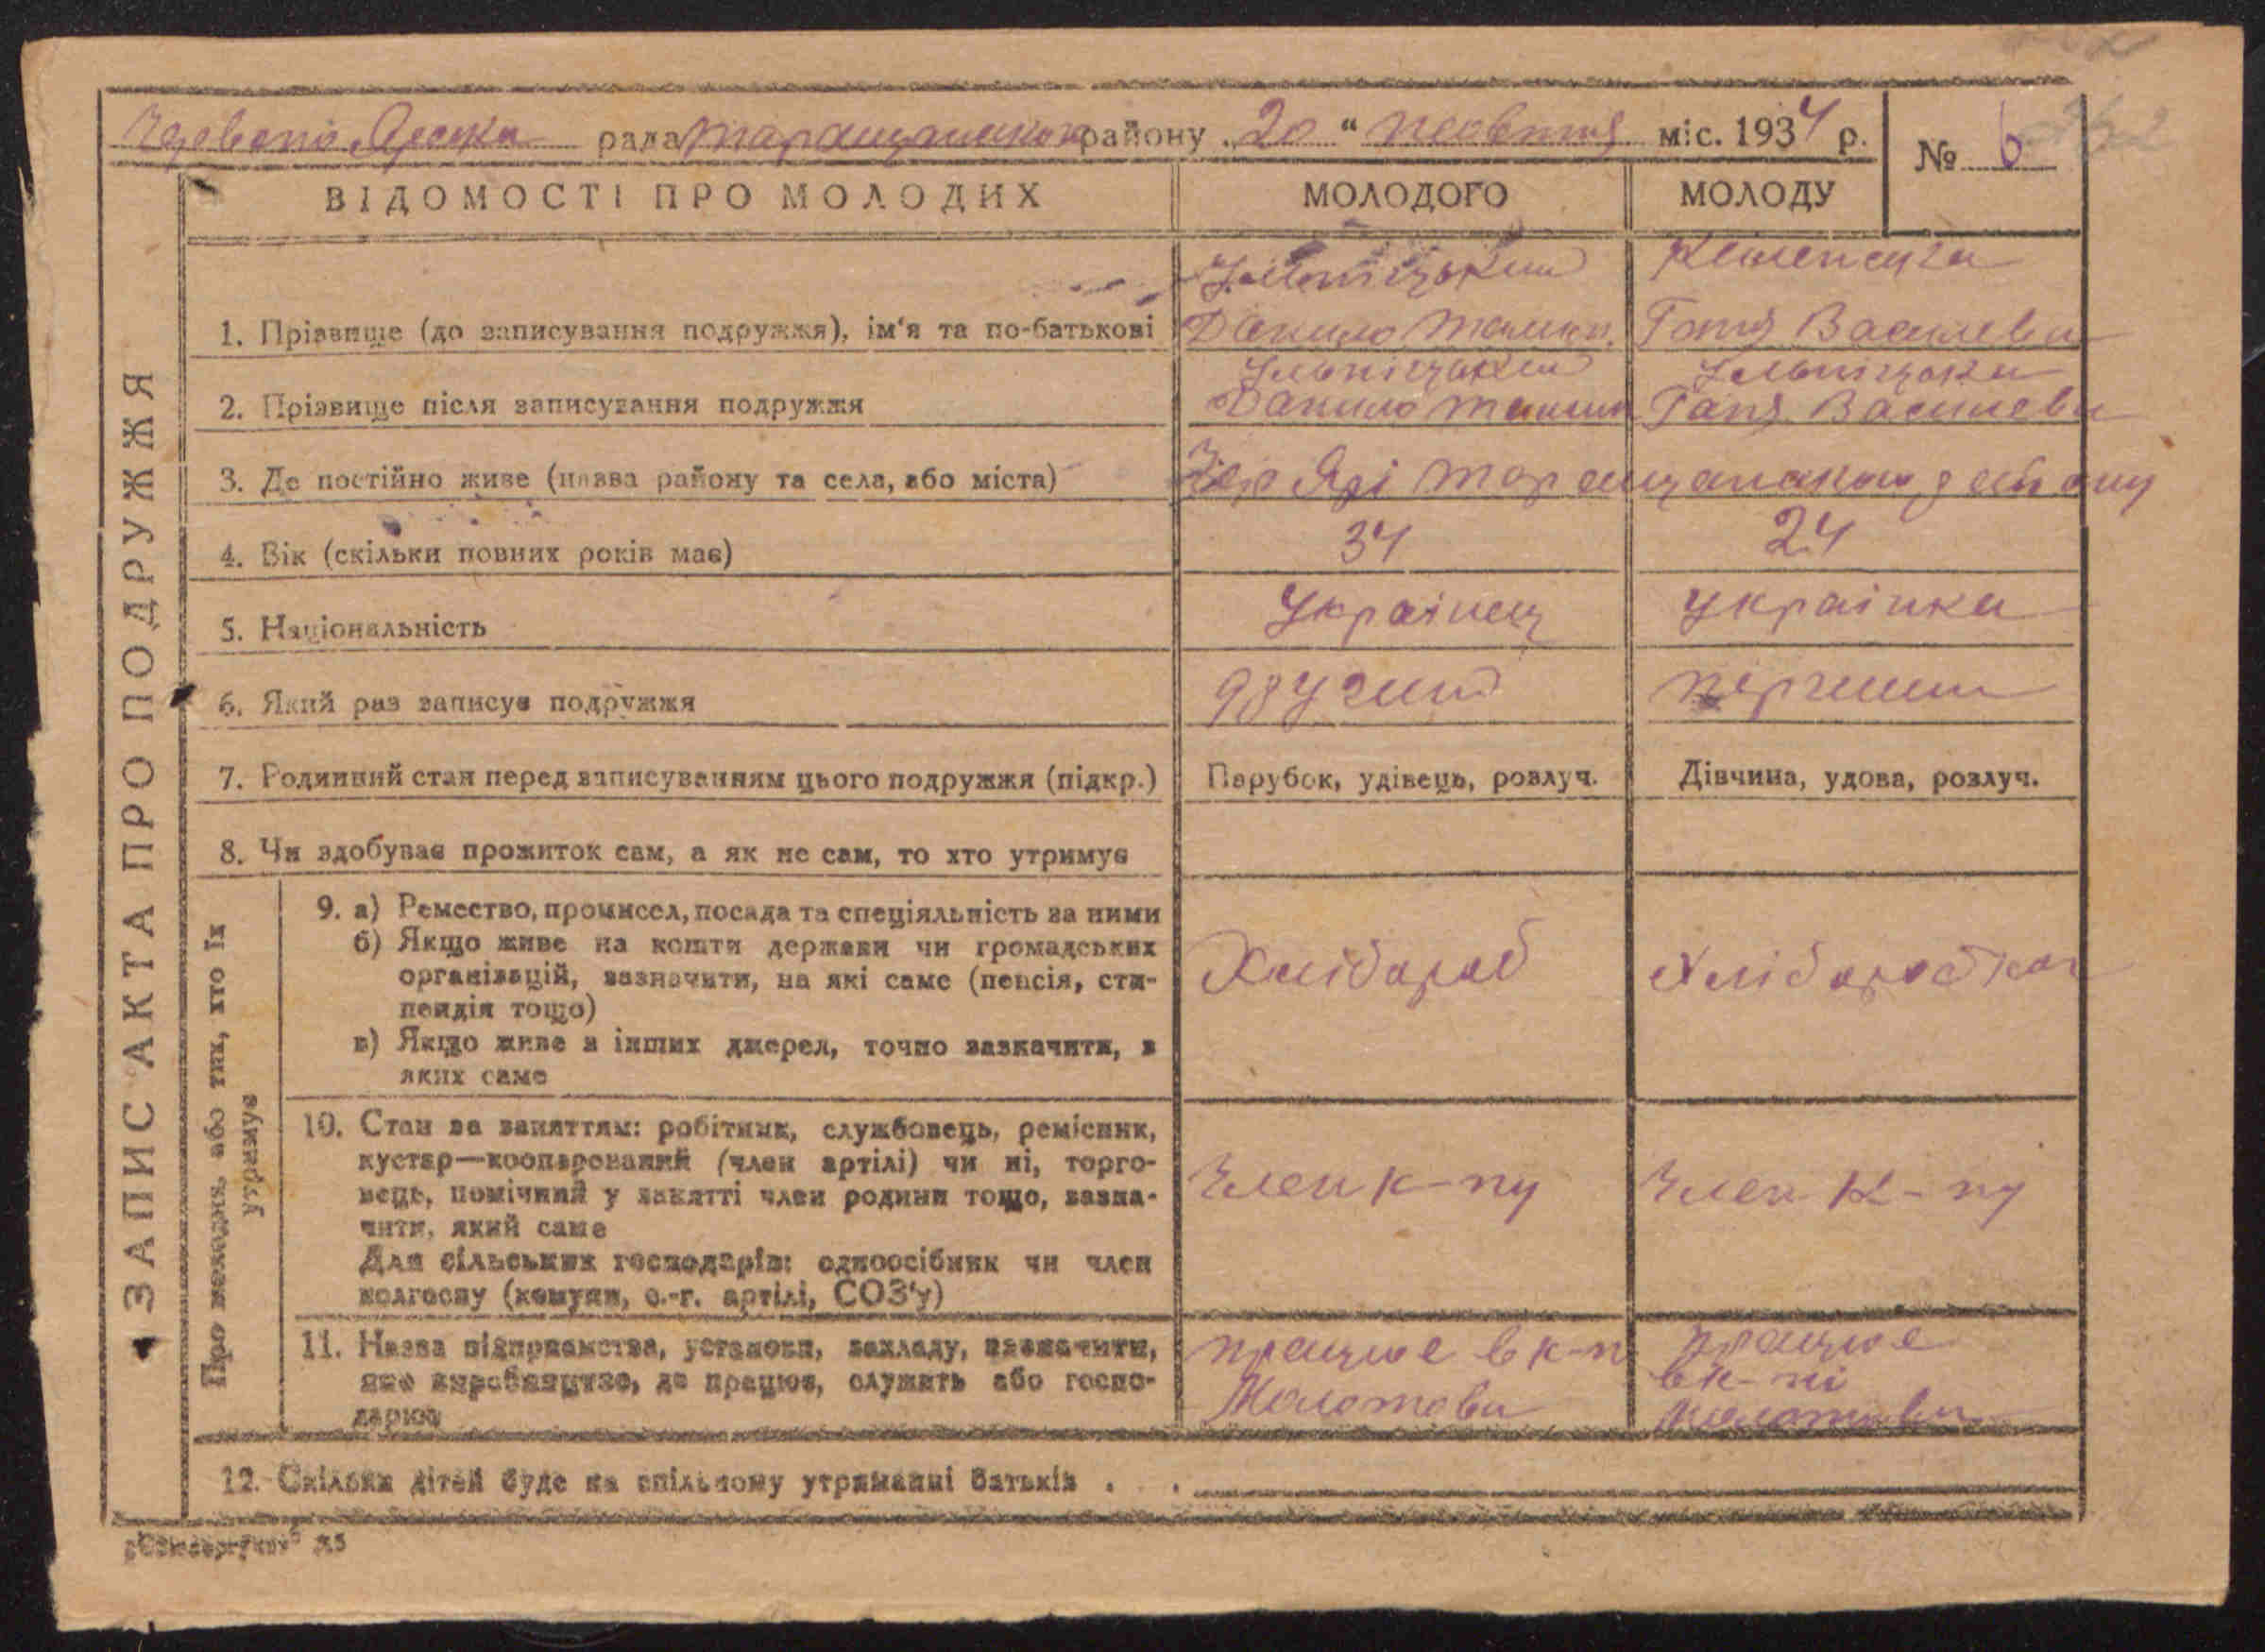 Червоно Ярська рада Таращанського району „20“ жовтня міс. 1934 р.
№ 6
ВІДОМОСТІ ПРО МОЛОДИХ МОЛОДОГО МОЛОДУ
ЗАПИС АКТА ПРО ПОДРУЖЖЯ
1. Прізвище (до записування подружжя), ім'я та по-батькові Данило Ганя Василева
2. Прізвище після записування подружжя Ільніцький Данило Ільніцька Ганя Василева
3. Де постійно живе (назва району та села, або міста) Чер Ярі Таращанського району
4. Вік (скільки повних років має) 34 24
5. Національність Українец українка
6. Який раз записує подружжя другий перший
7. Родинний стан перед записуванням цього подружжя (підкр.) Парубок, удівець, розлуч. Дівчина, удова, розлуч.
8. Чи здобуває прожиток сам, а як не сам, то хто утримує
Про молодих, або тих, хто їх
утримує
9. а) Ремество, промисел, посада та спеціяльність за ними
б) Якщо живе на кошти держави чи громадських
організацій, зазначити, на які саме (пенсія, сти-
пендія тощо)
в) Якщо живе з інших джерел, точно зазначити, з
яких саме
Хлібороб Хліборобка
10. Стан за заняттям: робітник, службовець, ремісник,
кустар—кооперований (член артілі) чи ні, торго-
вець, помічний у занятті член родини тощо, зазна-
чити, який саме
Для сільських господарів: одноосібник чи член
колгоспу (комуни, с.-г. артілі, СОЗ'у)
Член к-пу Член к-пу
11. Назва підприємства, установи, закладу, зазначити,
яке виробництво, де працює, служить або госпо-
дарює
працює в к-п
Молотова
працює
в к-пі
Молотова
12. Скільки дітей буде на спільному утриманні батьків . .